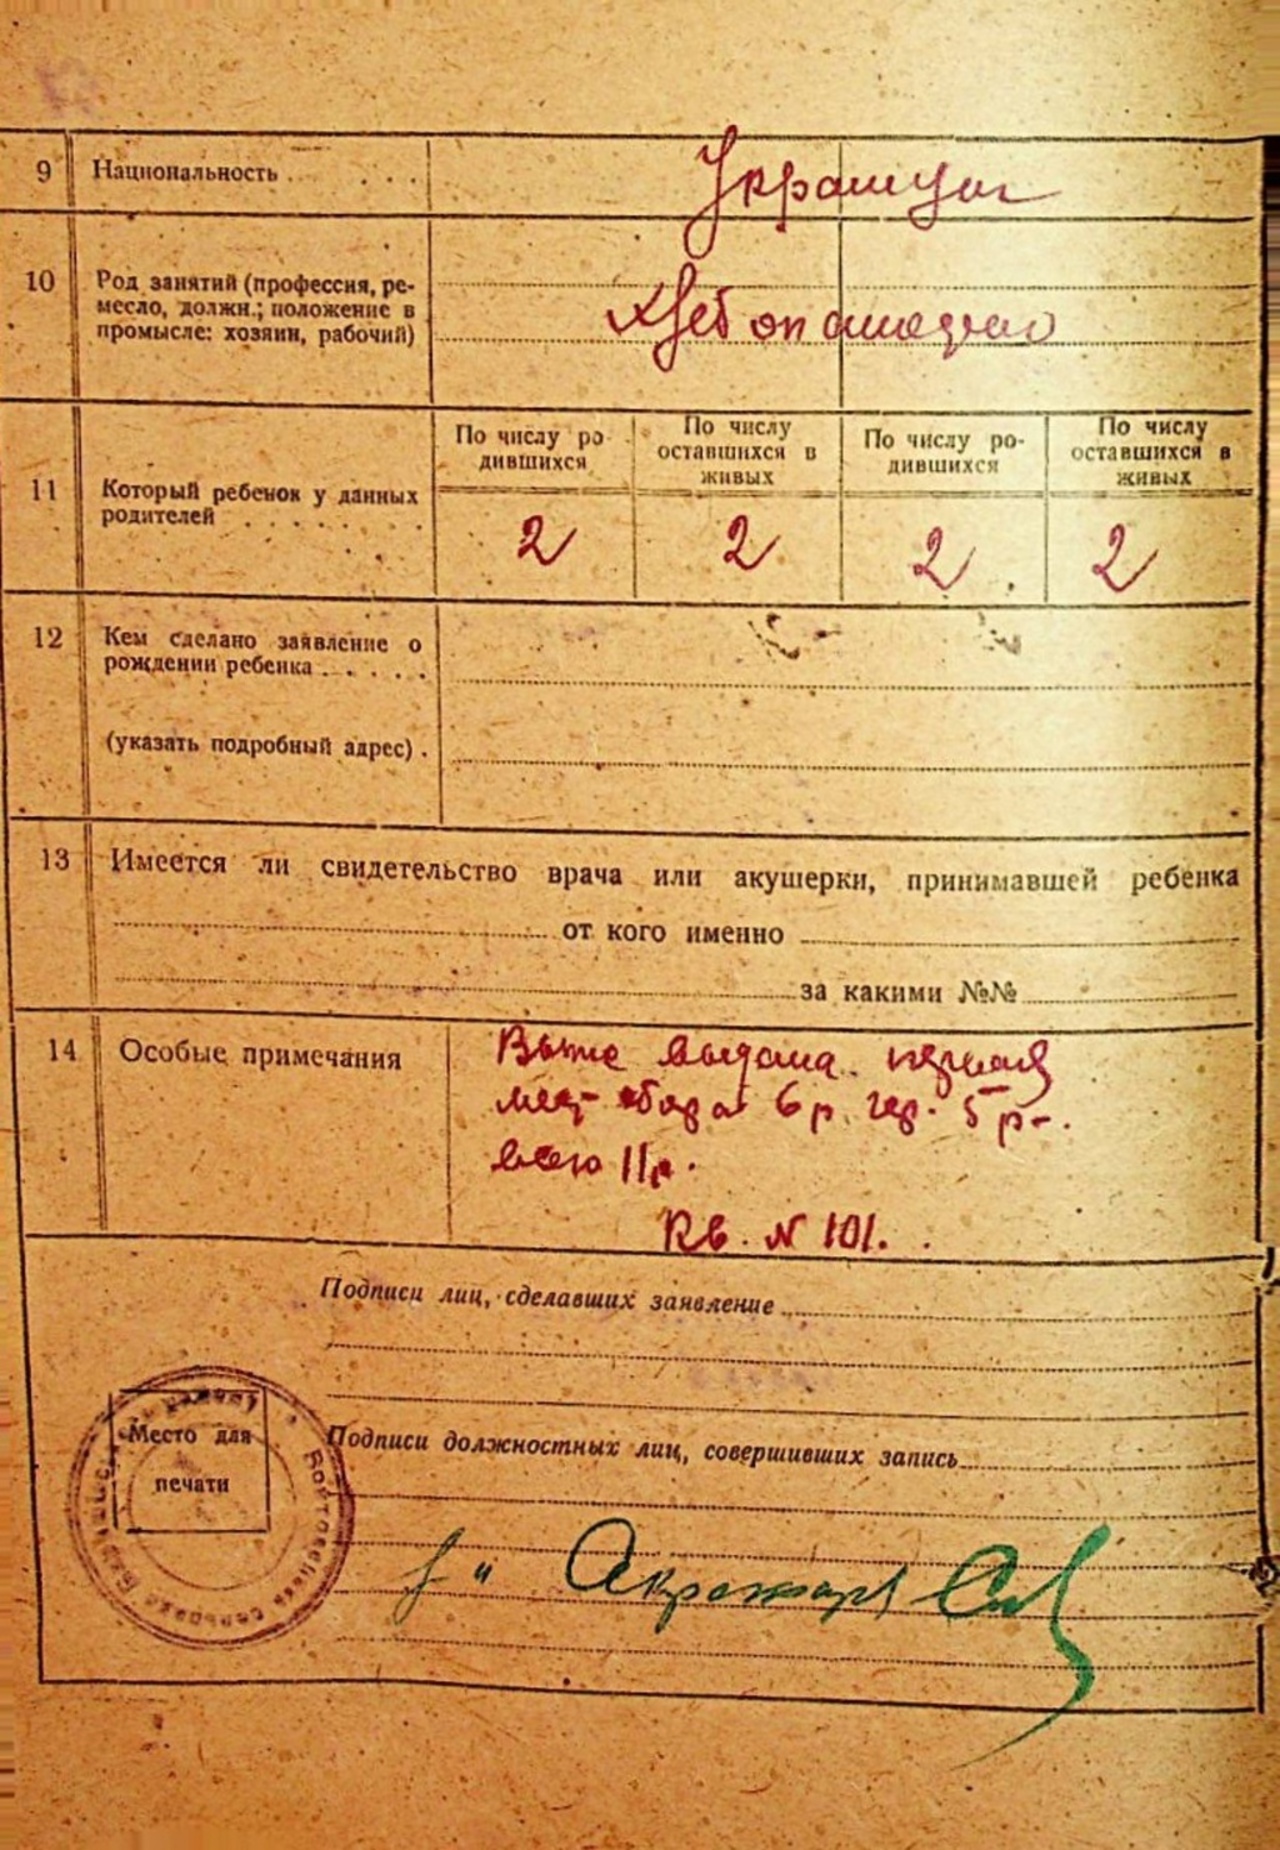 9 Национальность . . . . . .
Украинцы
10 Род занятий (профессия, ре-
месло, должн.; положение в
промысле: хозяин, рабочий)
11 Который ребенок у данных
родителей . . . . . . . .
По числу ро-
дившихся
По числу
оставшихся в
живых
По числу ро-
дившихся
По числу
оставшихся в
живых
2 2 2 2
12 Кем сделано заявление о
рождении ребенка . . . . .
(указать подробный адрес) .
13 Имеется ли свидетельство врача или акушерки, принимавшей ребенка
от кого именно
за какими №№
14 Особые примечания
6 р. 5 р.
всего 11 р.
Кв. N 101.
Подписи лиц, сделавших заявление
Место для
печати
Подписи должностных лиц, совершивших запись